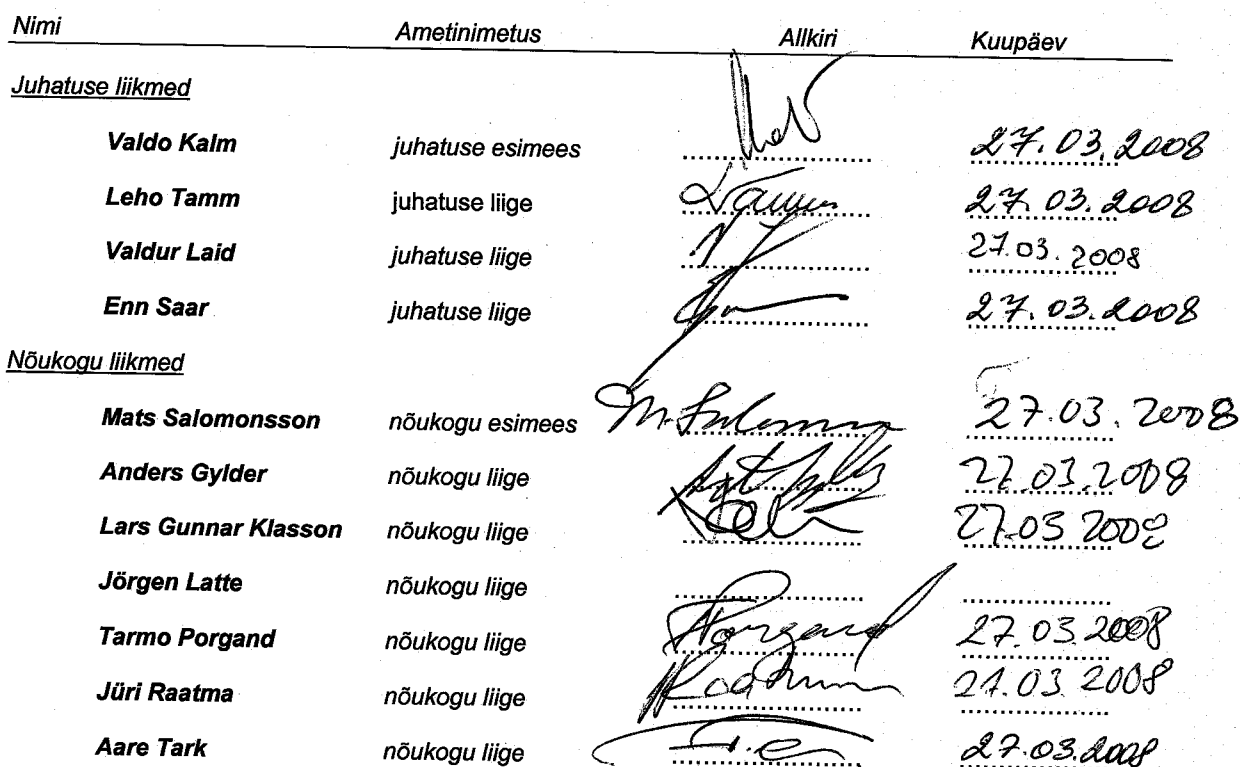 Nimi Ametinimetus Allkiri Kuupäev
Juhatuse liikmed
Valdo Kalm juhatuse esimees 27.03.2008
Leho Tamm juhatuse liige 27.03.2008
Valdur Laid juhatuse liige 27.03.2008
Enn Saar juhatuse liige 27.03.2008
Nõukogu liikmed
Mats Salomonsson nõukogu esimees 27.03.2008
Anders Gylder nõukogu liige 27.03.2008
Lars Gunnar Klasson nõukogu liige 27.03 2008
Jörgen Latte nõukogu liige
Tarmo Porgand nõukogu liige Porgand 27.03.2008
Jüri Raatma nõukogu liige 27.03.2008
Aare Tark nõukogu liige 27.03.2008